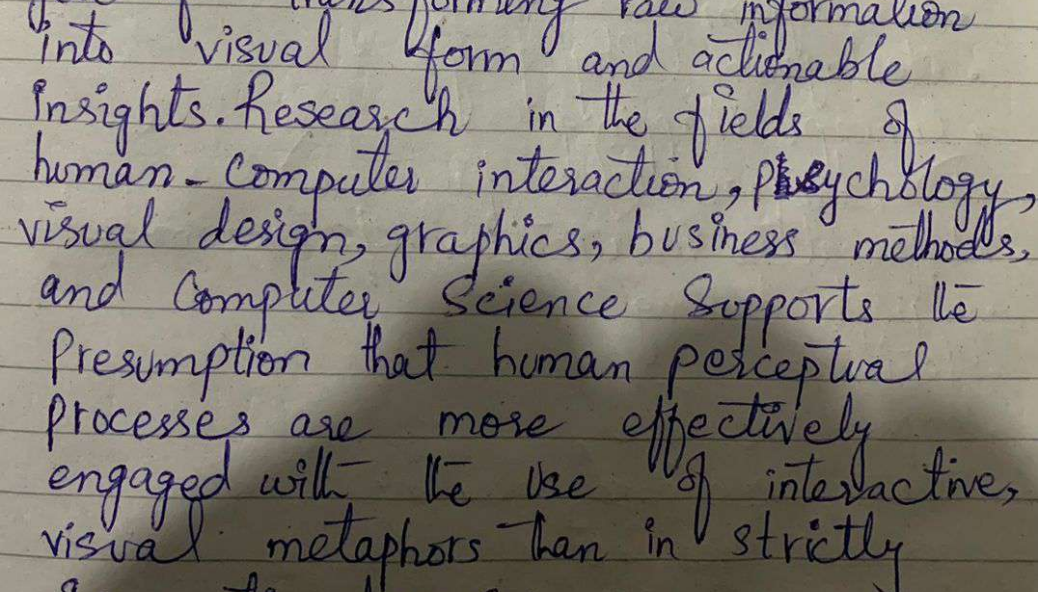 transforming raw information
into visual form and actionable
insights. Research in the fields of
human-Computer interaction, psychology,
visual design, graphics, business methods,
and Computer Science Supports the
Presumption that human perceptual
Processes are more effectively
engaged with the Use of interactive,
visual metaphors than in strictly